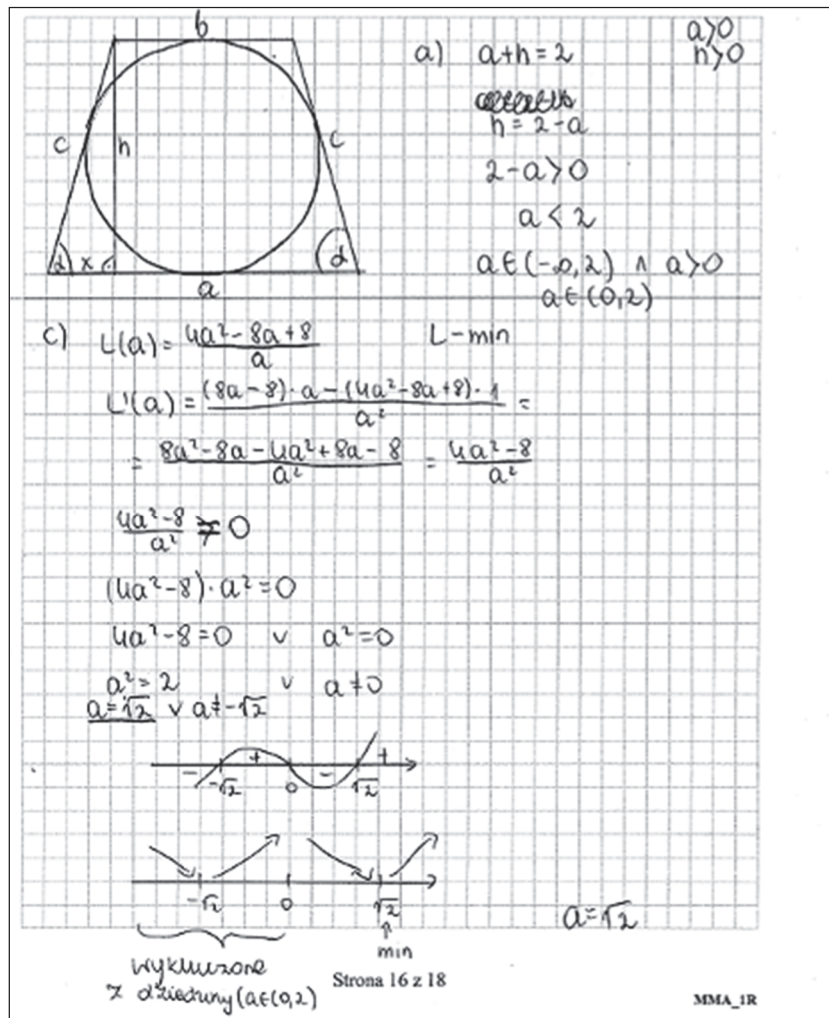 b
c
h
c
α
x
α
a
a) a+h=2
a>0
h>0
h=2-a
2-a>0
a<2
a∈(-∞,2) ∧ a>0
a∈(0,2)
c) L(a)= (4a²-8a+8)/a
L-min
L'(a)= ((8a-8)·a-(4a²-8a+8)·1)/a² =
= (8a²-8a-4a²+8a-8)/a² = (4a²-8)/a²
(4a²-8)/a² = 0
(4a²-8)·a²=0
4a²-8=0 ∨ a²=0
a²=2 ∨ a≠0
a=√2 ∨ a≠-√2
- + - +
-√2 0 √2
-√2 0 √2
min
a=√2
wykluczone
z dziedziny (a∈(0,2)
Strona 16 z 18
MMA_1R